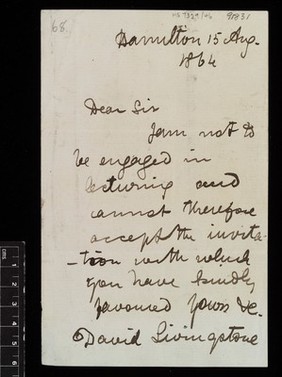 68
Hamilton 15 Aug.
1864
Dear Sir
I am not to
be engaged in
lecturing and
cannot therefore
accept the invita-
-tion with which
you have kindly
favoured yours &c.
David Livingstone
1
2
3
4
5
6